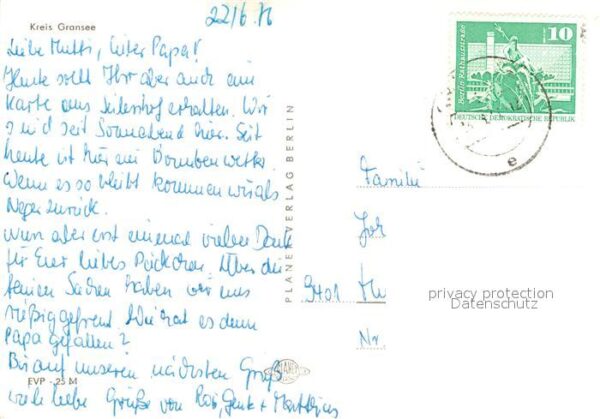 22/6.76
Kreis Gransee
Liebe Mutti, lieber Papa!
Heute sollt Ihr aber auch ein
Karte aus Seilershof erhalten. Wir
sind seit Sonnabend hier. Seit
heute ist hier ein Bombenwetter
Wenn es so bleibt kommen wir als
Neger zurück.
Nun aber erst einmal vielen Dank
für Euer liebes Päckchen. Über die
feinen Sachen haben wir uns
riesig gefreut. Wie hat es denn
Papa gefallen?
Bis auf unseren nächsten Gruß
viele liebe Grüße von
EVP - 25 M
PLANET-VERLAG BERLIN
Berlin, Rathausstraße
10
DEUTSCHE DEMOKRATISCHE REPUBLIK
e
Familie
9401
Nr.
privacy protection
Datenschutz